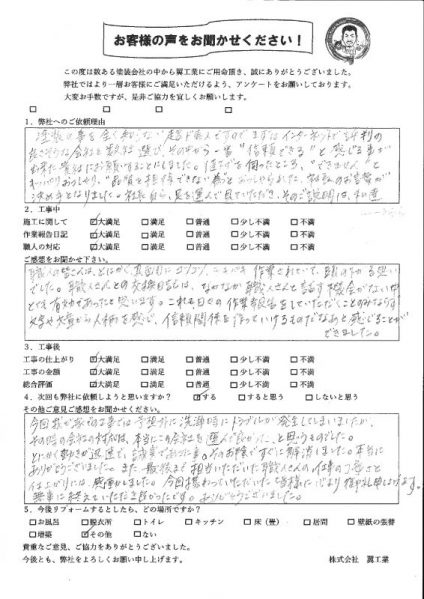 お客様の声をお聞かせください！
この度は数ある塗装会社の中から翼工業にご用命頂き、誠にありがとうございました。
弊社ではより一層お客様にご満足いただけるよう、アンケートをお願いしております。
大変お手数ですが、是非ご協力を宜しくお願いします。
□ □ □ □
1. 弊社へのご依頼理由
塗装の事を全く知らない超ド素人ですので まずはインターネットで評判の
会社を数社 選び、その中から一番"信頼できる"と感じる事が
出来た貴社にお願いすることにしました。
"品質を担保できない為"とおっしゃいました。
決め手となりました。
2. 工事中
施工に関して ☑大満足 □満足 □普通 □少し不満 □不満
作業報告日記 ☑大満足 □満足 □普通 □少し不満 □不満
職人の対応 ☑大満足 □満足 □普通 □少し不満 □不満
ご感想をお聞かせ下さい。
職人の皆さんは、とにかく、真面目にコツコツ、ニコニコと作業されていて、頭の下がる思い
でした。職人さんとの交換日記も、なかなか職人さんと話す機会がない中
とても有効であったと思います。これも日々の作業報告をしていただくことのみならず
文字や文章から人柄を感じ、信頼関係を作っていけるものだなあと感じることが
できました。
3. 工事後
工事の仕上がり ☑大満足 □満足 □普通 □少し不満 □不満
工事の金額 ☑大満足 □満足 □普通 □少し不満 □不満
総合評価 ☑大満足 □満足 □普通 □少し不満 □不満
4. 次回も弊社に依頼しようと思いますか？ ☑する □すると思う □しないと思う
その他ご意見ご感想をお聞かせください。
今回我が家の工事では予想外に洗浄時にトラブルが発生してしまいましたが、
その時の会社の対応は、本当にこの会社を選んで良かった、と思うものでした。
とにかく動きが迅速で、誠実でありました。そのお陰ですぐに解消しました。本当に
ありがとうございました。また、最後まで担当いただいた職人さんの仕事の丁寧さと
仕上がりには感動しました。今回携わっていただいた皆様に心より御礼申し上げます。
無事に終えていただき良かったです。ありがとうございました。
5. 今後リフォームするとしたら、どの場所ですか？
□お風呂 □脱衣所 □トイレ □キッチン □床（畳） □居間 □壁紙の張替
□増築 ☑その他 □ない
貴重なご意見、ご協力をありがとうございました。
今後とも、弊社をよろしくお願い申し上げます。 株式会社 翼工業